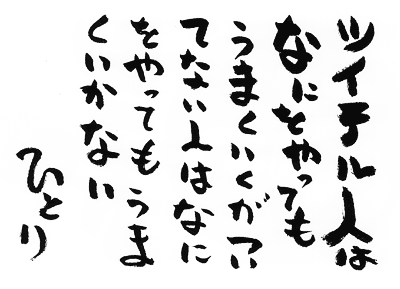 ツイテル人は
なにをやっても
うまくいくがツイ
てない人はなに
をやってもうま
くいかない
ひとり